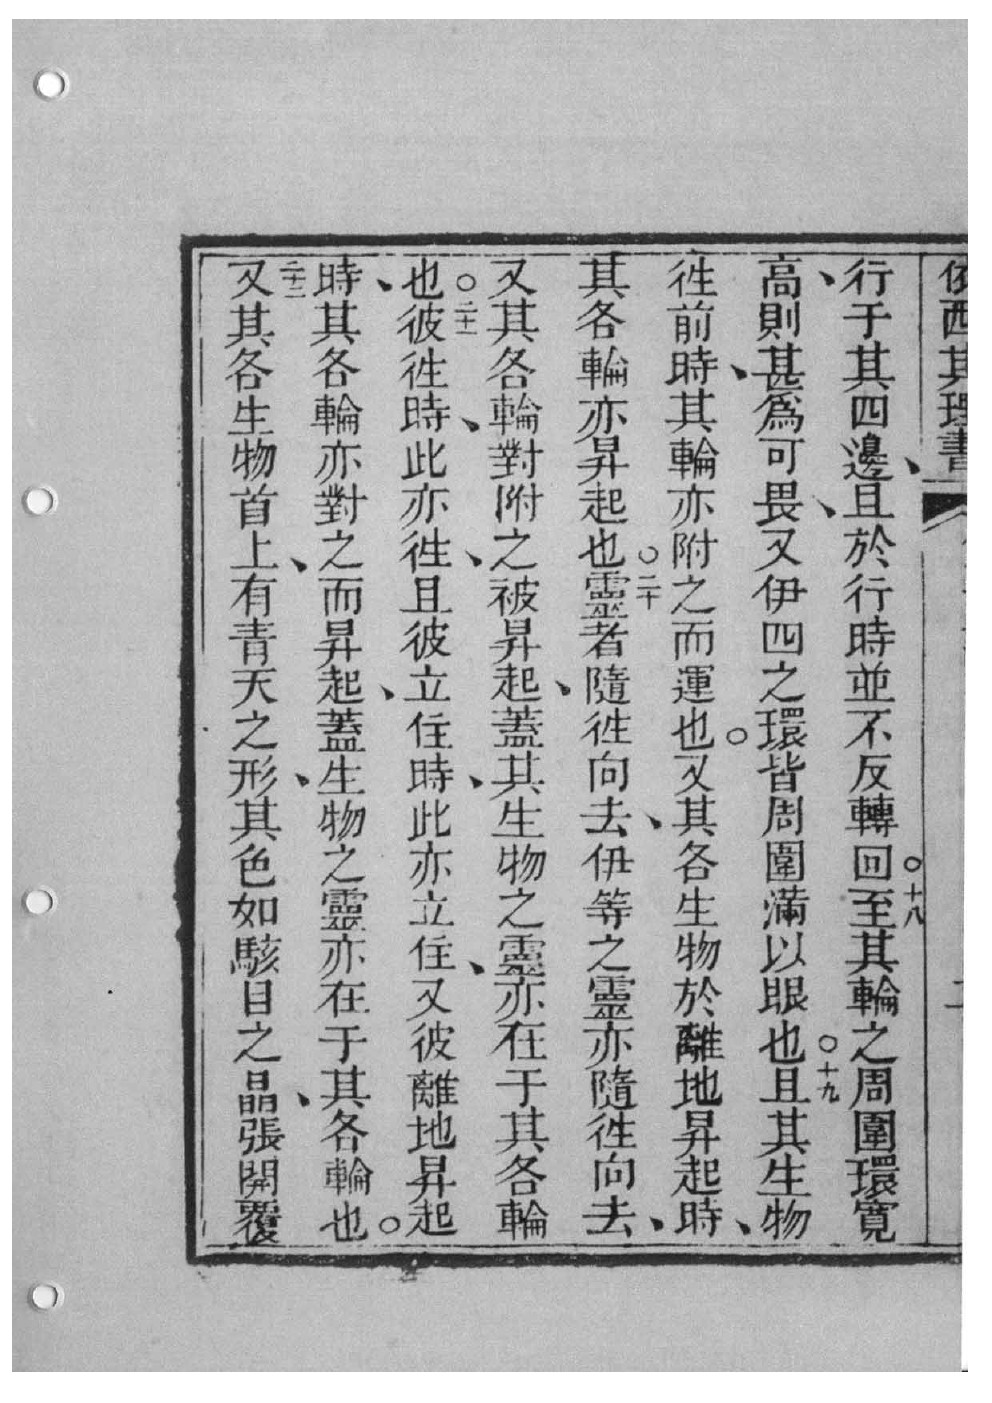 依西其理書
行于其四邊、且於行時並不反轉回○十八至其輪之周圍環寬
、高則甚爲可畏、又伊四之環皆周圍滿以眼也○十九且其生物
徃前時、其輪亦附之而運也○又其各生物於離地昇起時、
其各輪亦昇起也○二十靈者隨徃向去、伊等之靈亦隨徃向去、
又其各輪對附之被昇起、蓋其生物之靈亦在于其各輪
也○二十一彼徃時、此亦徃、且彼立住時、此亦立住、又彼離地昇起
、時其各輪亦對之而昇起、蓋生物之靈亦在于其各輪也○
二十二又其各生物首上、有青天之形、其色如駭目之晶、張開覆